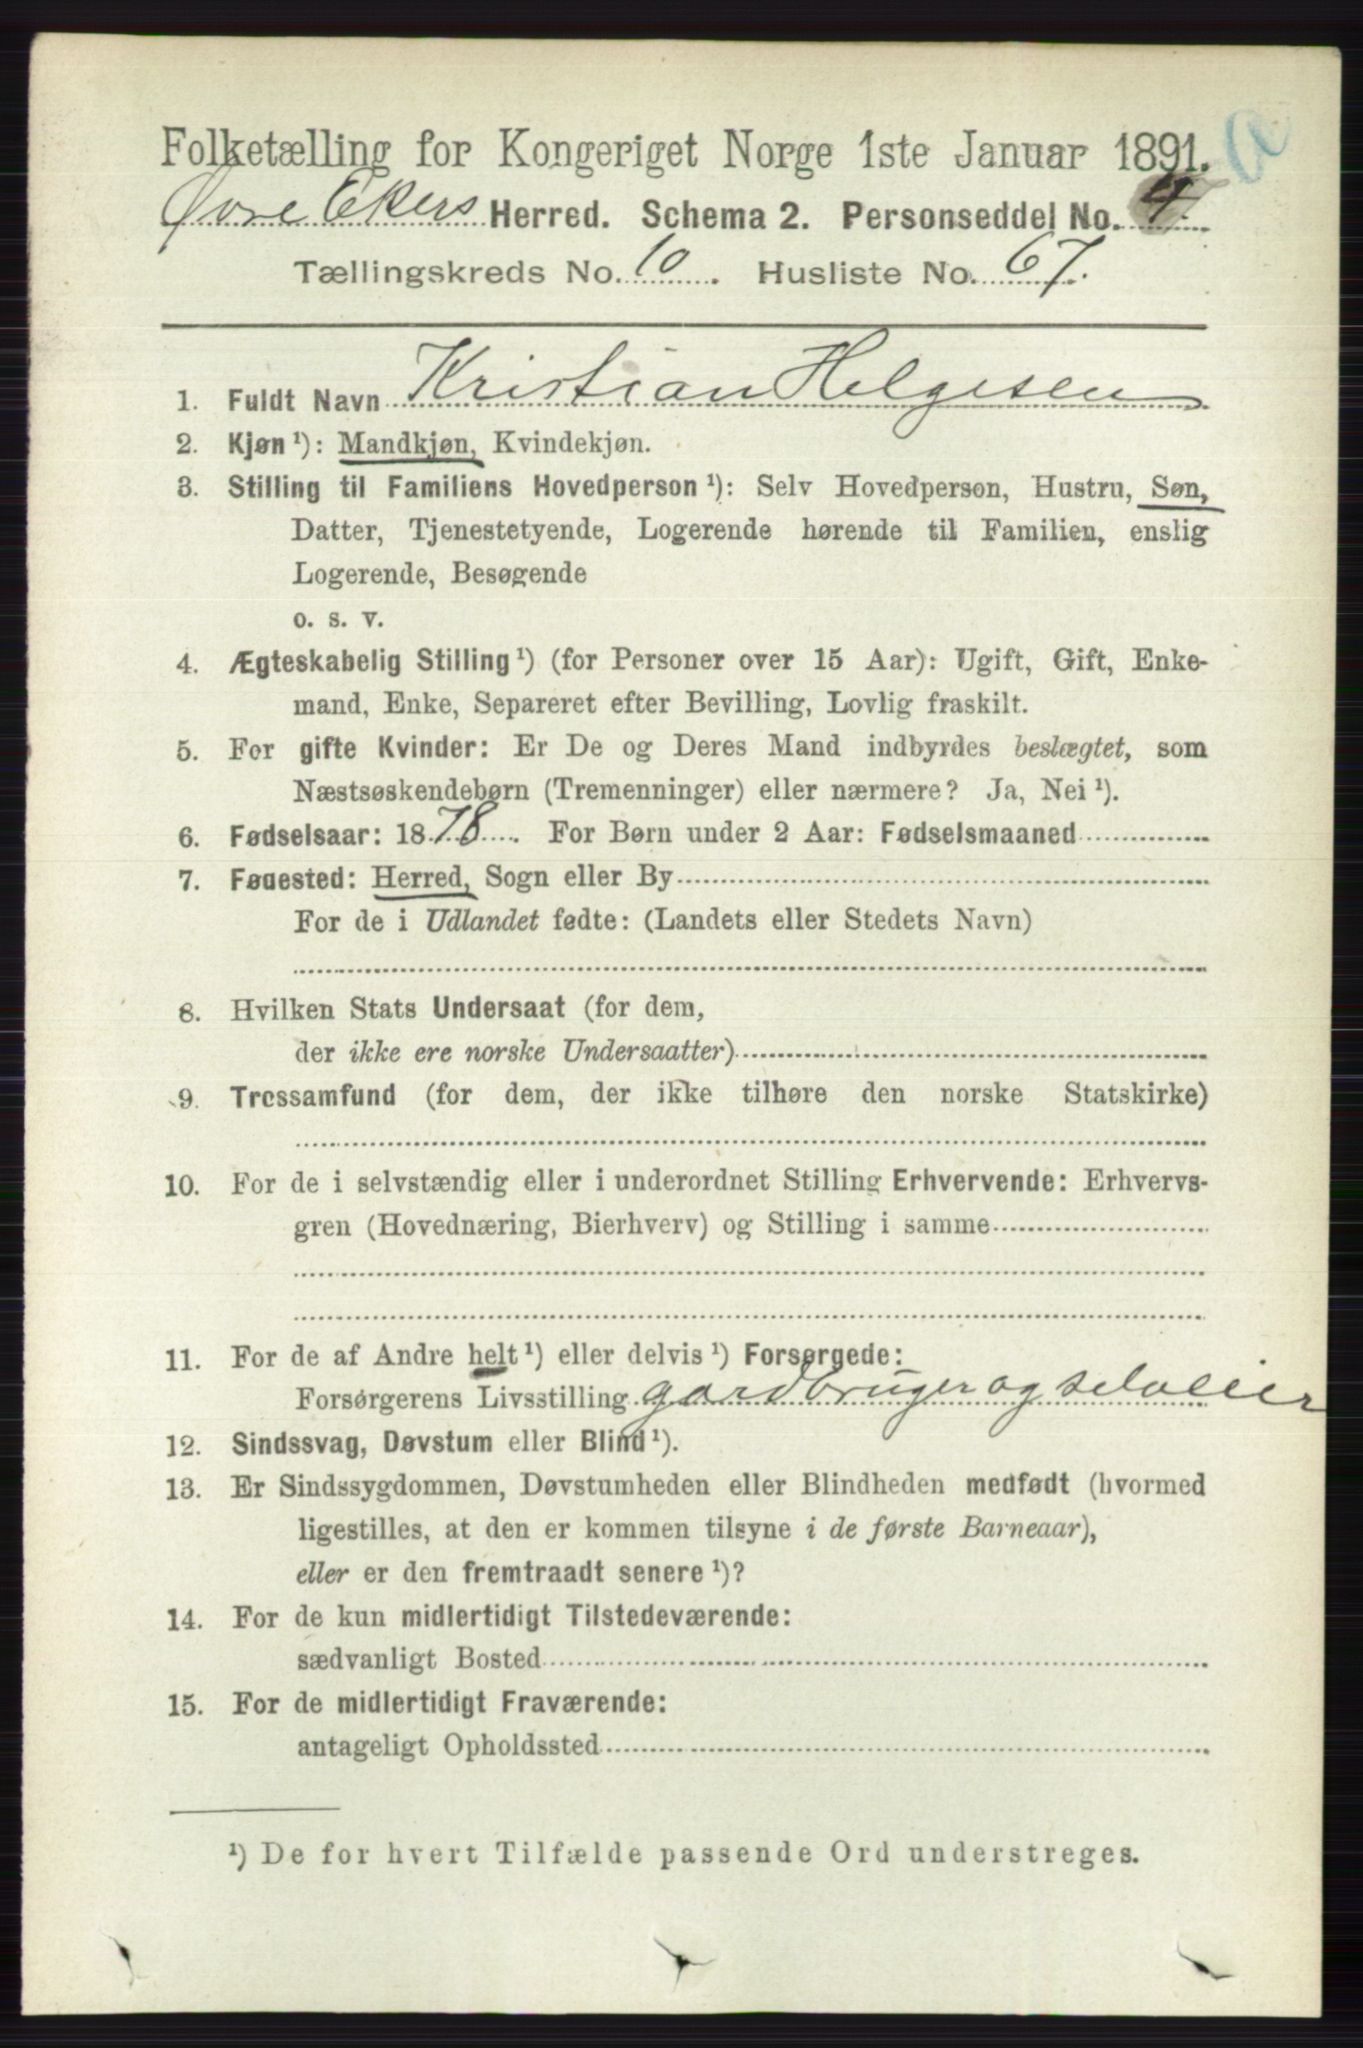 Folketælling for Kongeriget Norge 1ste Januar 1891.
Øvre Ekers Herred. Schema 2. Personseddel No. 4
Tællingskreds No. 10. Husliste No. 67.
1. Fuldt Navn Kristian Helgesen
2. Kjøn ¹): Mandkjøn, Kvindekjøn.
3. Stilling til Familiens Hovedperson ¹): Selv Hovedperson, Hustru, Søn,
Datter, Tjenestetyende, Logerende hørende til Familien, enslig
Logerende, Besøgende
o. s. v.
4. Ægteskabelig Stilling ¹) (for Personer over 15 Aar): Ugift, Gift, Enke-
mand, Enke, Separeret efter Bevilling, Lovlig fraskilt.
5. For gifte Kvinder: Er De og Deres Mand indbyrdes beslægtet, som
Næstsøskendebørn (Tremenninger) eller nærmere? Ja, Nei ¹).
6. Fødselsaar: 1878. For Børn under 2 Aar: Fødselsmaaned
7. Fødested: Herred, Sogn eller By
For de i Udlandet fødte: (Landets eller Stedets Navn)
8. Hvilken Stats Undersaat (for dem,
der ikke ere norske Undersaatter)
9. Trossamfund (for dem, der ikke tilhøre den norske Statskirke)
10. For de i selvstændig eller i underordnet Stilling Erhvervende: Erhvervs-
gren (Hovednæring, Bierhverv) og Stilling i samme
11. For de af Andre helt ¹) eller delvis ¹) Forsørgede:
Forsørgerens Livsstilling gardbruger og selveier
12. Sindssvag, Døvstum eller Blind ¹).
13. Er Sindssygdommen, Døvstumheden eller Blindheden medfødt (hvormed
ligestilles, at den er kommen tilsyne i de første Barneaar),
eller er den fremtraadt senere ¹)?
14. For de kun midlertidigt Tilstedeværende:
sædvanligt Bosted
15. For de midlertidigt Fraværende:
antageligt Opholdssted
¹) De for hvert Tilfælde passende Ord understreges.